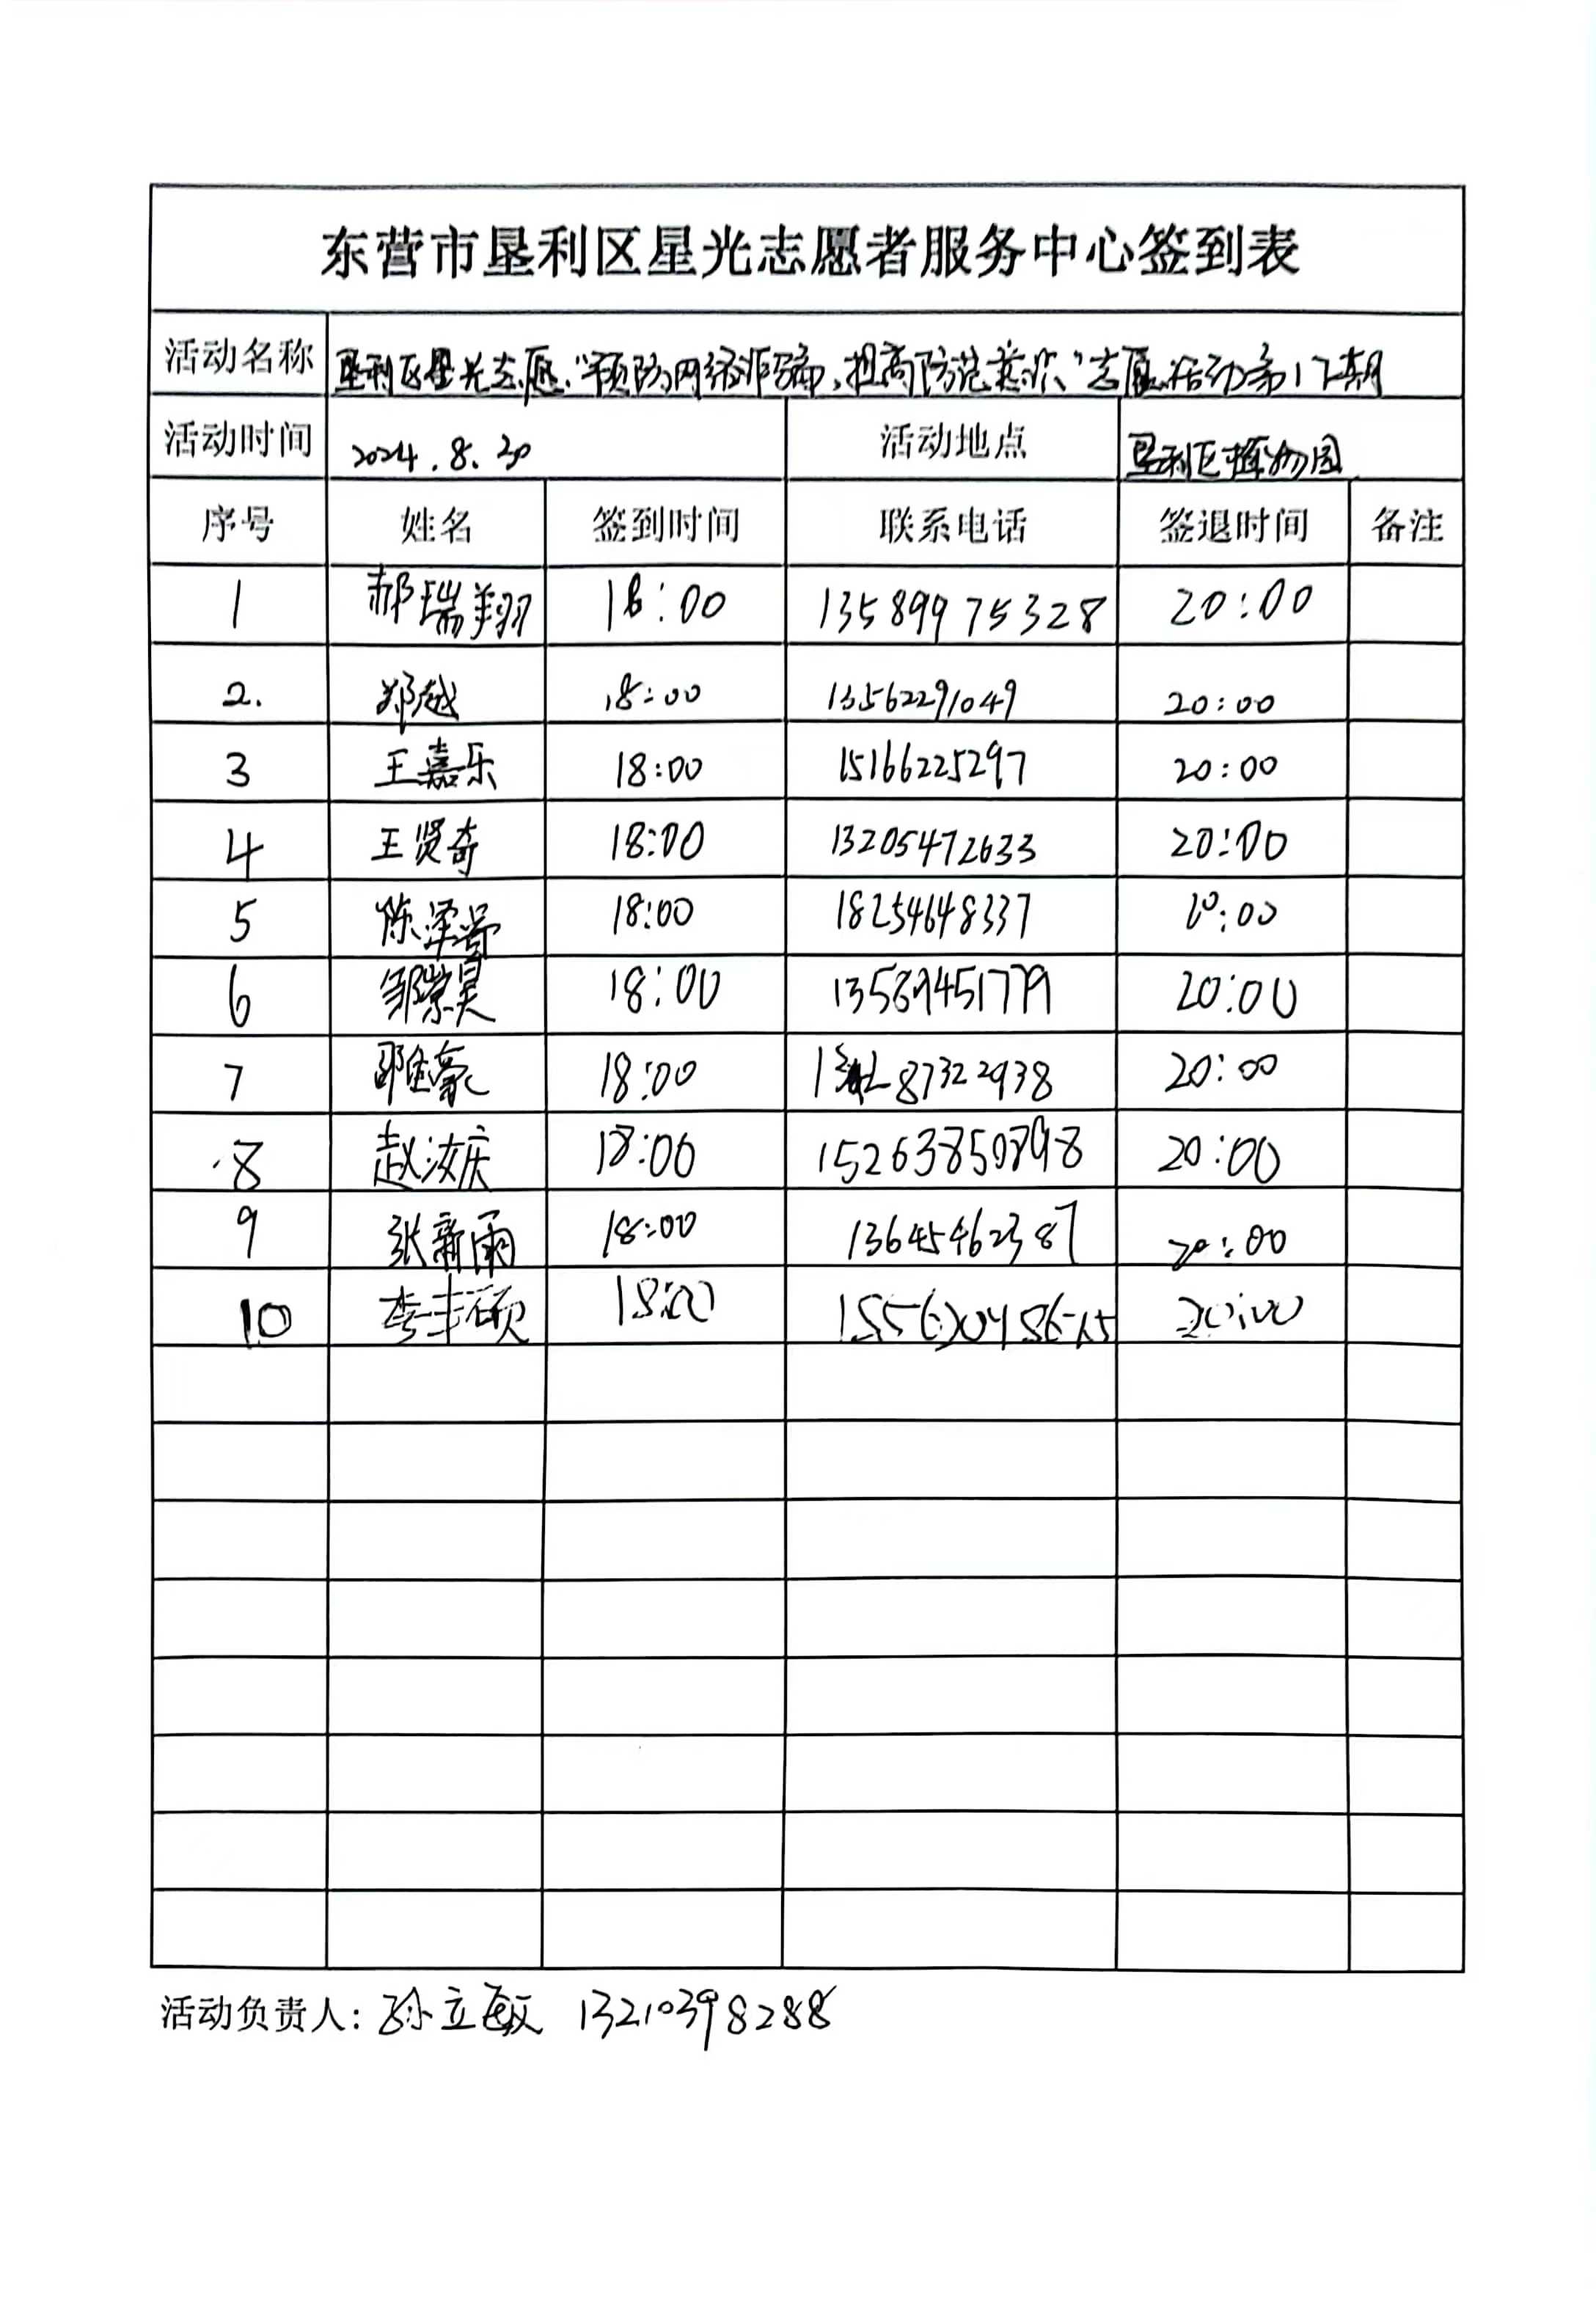 东营市垦利区星光志愿者服务中心签到表
活动名称 垦利区星光志愿“预防网络诈骗,提高防范意识”志愿活动第17期
活动时间 2024.8.30 活动地点 垦利区植物园
序号 姓名 签到时间 联系电话 签退时间 备注
1 郝瑞翔 18:00 13589975328 20:00
2. 郑越 18:00 13562291049 20:00
3 王嘉乐 18:00 15166225297 20:00
4 王贤奇 18:00 13205472633 20:00
5 陈泽 18:00 18254648337 20:00
6 邹崇昊 18:00 13589451779 20:00
7 豪 18:00 20:00
8 赵汝庆 18:00 15263850898 20:00
9 张新雨 18:00 13645462387 20:00
10 李丰硕 18:00 20:00
活动负责人: 孙立敏 13210398288